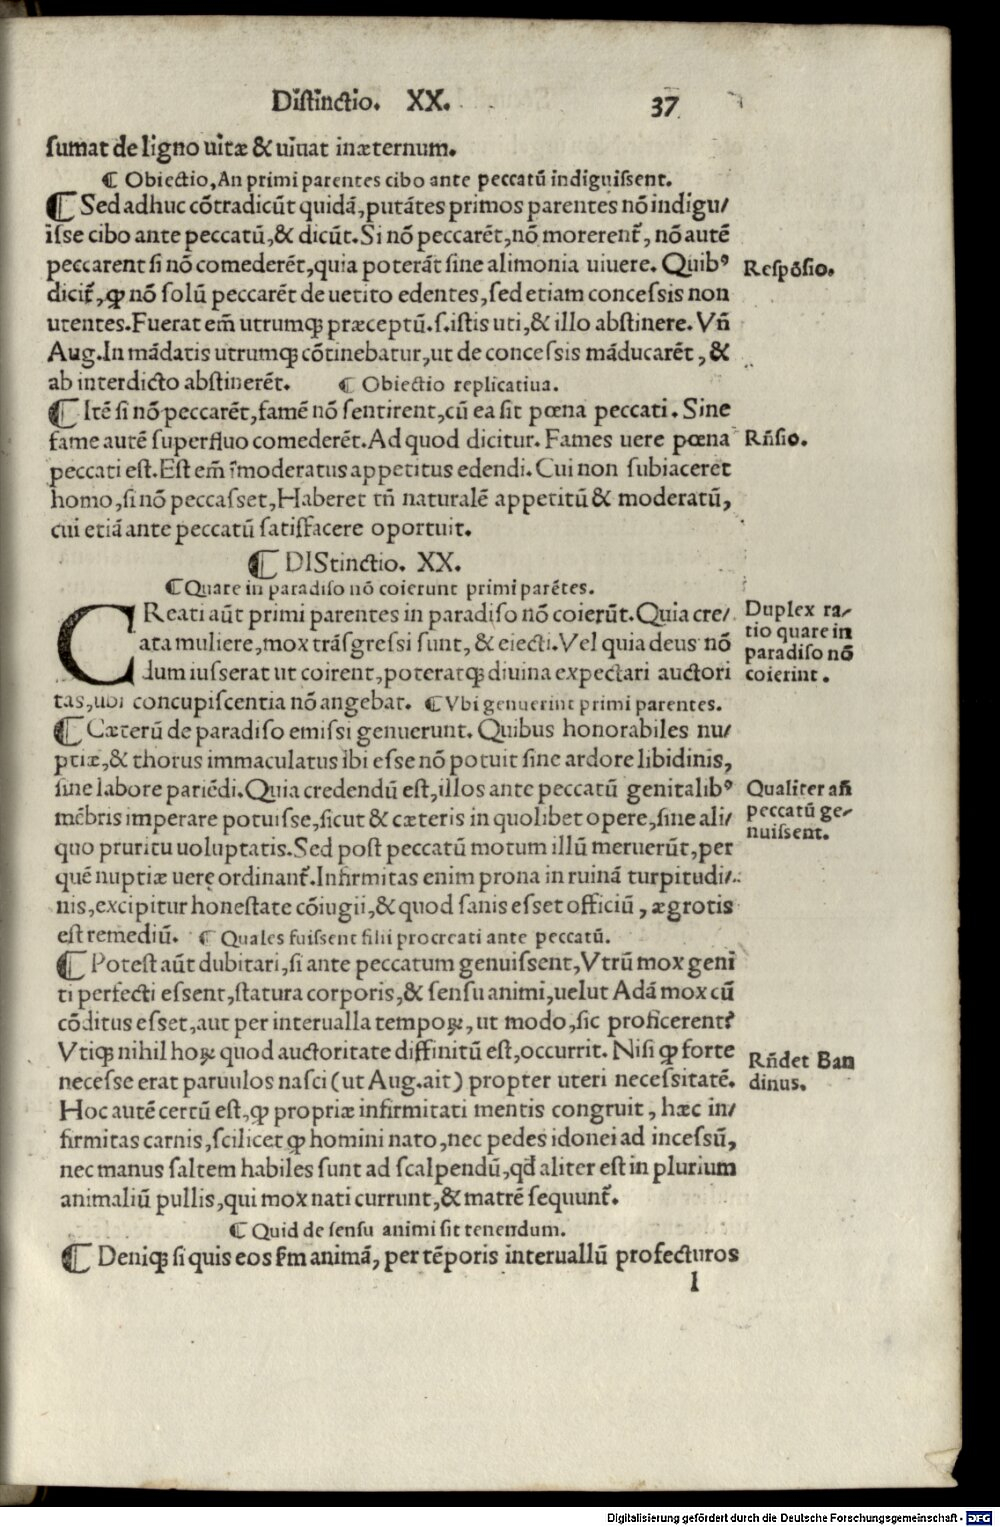 Distinctio. XX. 37
sumat de ligno uitæ & uiuat inæternum.
¶ Obiectio, An primi parentes cibo ante peccatū indiguissent.
¶ Sed adhuc cōtradicūt quidā, putātes primos parentes nō indigu/
isse cibo ante peccatū, & dicūt. Si nō peccarēt, nō morerent᷑, nō autē
peccarent si nō comederēt, quia poterāt sine alimonia uiuere. Quibꝰ
Respōsio.
dicit᷑, ꝙ nō solū peccarēt de uetito edentes, sed etiam concessis non
utentes. Fuerat em̄ utrumqꝫ præceptū. s. istis uti, & illo abstinere. Vn̄
Aug. In mādatis utrumqꝫ cōtinebatur, ut de concessis māducarēt, &
ab interdicto abstinerēt. ¶ Obiectio replicatiua.
¶ Itē si nō peccarēt, famē nō sentirent, cū ea sit pœna peccati. Sine
fame autē superfluo comederēt. Ad quod dicitur. Fames uere pœna
Rn̄sio.
peccati est. Est em̄ īmoderatus appetitus edendi. Cui non subiaceret
homo, si nō peccasset, Haberet tn̄ naturalē appetitū & moderatū,
cui etiā ante peccatū satisfacere oportuit.
¶ DIStinctio. XX.
¶ Quare in paradiso nō coierunt primi parētes.
CReati aūt primi parentes in paradiso nō coierūt. Quia cre/
ata muliere, mox trāsgressi sunt, & eiecti. Vel quia deus nō
dum iusserat ut coirent, poteratqꝫ diuina expectari auctori
Duplex ra/
tio quare in
paradiso nō
coierint.
tas, ubi concupiscentia nō angebat. ¶ Vbi genuerint primi parentes.
¶ Cæterū de paradiso emissi genuerunt. Quibus honorabiles nu/
ptiæ, & thorus immaculatus ibi esse nō potuit sine ardore libidinis,
sine labore pariēdi. Quia credendū est, illos ante peccatū genitalibꝰ
mēbris imperare potuisse, sicut & cæteris in quolibet opere, sine ali/
Qualiter an̄
peccatū ge/
nuissent.
quo pruritu uoluptatis. Sed post peccatū motum illū meruerūt, per
quē nuptiæ uerę ordinant᷑. Infirmitas enim prona in ruinā turpitudi/
nis, excipitur honestate cōiugii, & quod sanis esset officiū, ægrotis
est remediū. ¶ Quales fuissent filii procreati ante peccatū.
¶ Potest aūt dubitari, si ante peccatum genuissent, Vtrū mox geni
ti perfecti essent, statura corporis, & sensu animi, uelut Adā mox cū
cōditus esset, aut per interualla tempoꝝ, ut modo, sic proficerent?
Vtiqꝫ nihil hoꝝ quod auctoritate diffinitū est, occurrit. Nisi ꝙ forte
necesse erat paruulos nasci (ut Aug. ait) propter uteri necessitatē.
Rn̄det Ban
dinus.
Hoc autē certū est, ꝙ propriæ infirmitati mentis congruit, hæc in/
firmitas carnis, scilicet ꝙ homini nato, nec pedes idonei ad incessū,
nec manus saltem habiles sunt ad scalpendū, qđ aliter est in plurium
animaliū pullis, qui mox nati currunt, & matrē sequunt᷑.
¶ Quid de sensu animi sit tenendum.
¶ Deniqꝫ si quis eos fm̄ animā, per tēporis interuallū profecturos
l
Digitalisierung gefördert durch die Deutsche Forschungsgemeinschaft - DFG